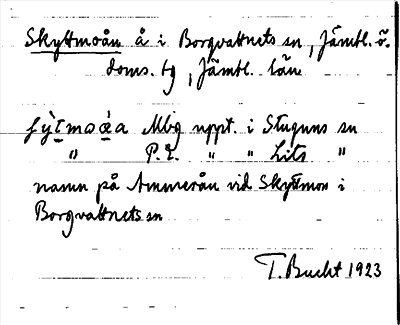 Skyttmoån å i Borgvattnets sn, Jämtl. ö.
doms. tg, Jämtl. län
uppt. i Stuguns sn
" P. E. " " Lits "
namn på Ammerån vid Skyttmon i
Borgvattnets sn
T. Bucht 1923